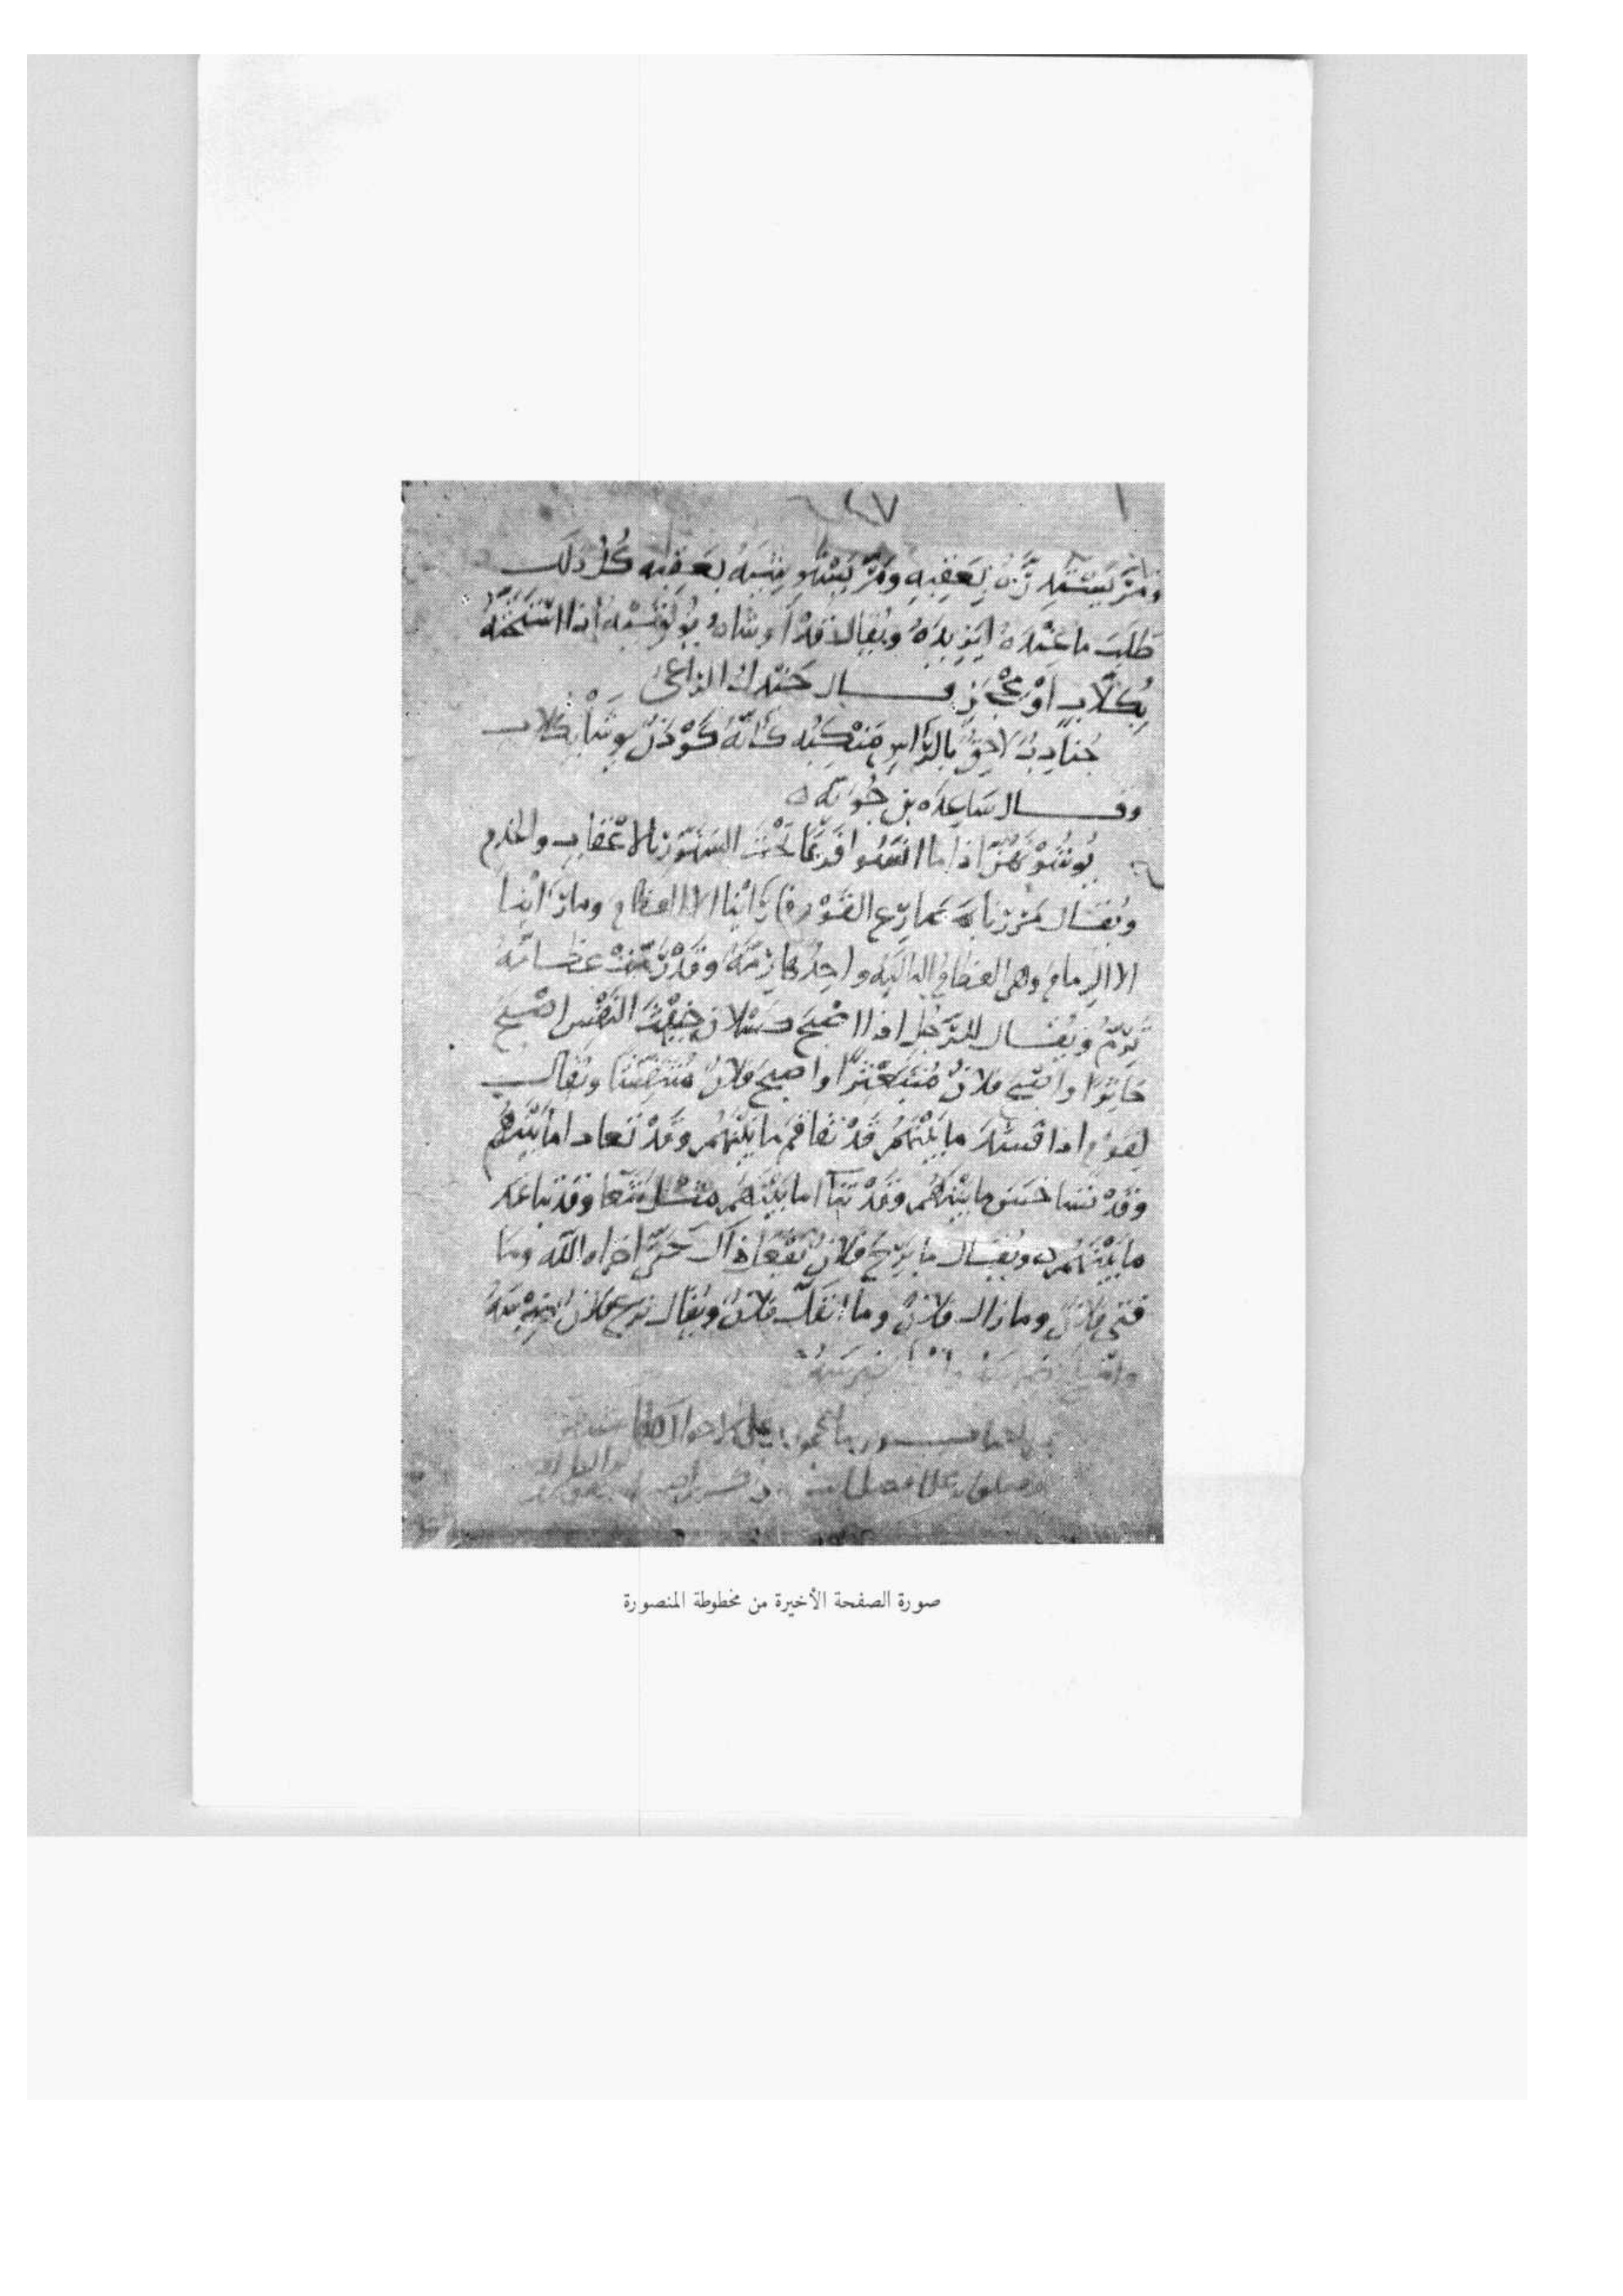 ومَرَّ يَسْتَدِرُّهُ بِعَقِبِهِ ومَرَّ يَسْتَوْشِيهِ بِعَقِبِهِ كُلُّ ذلك
طَلَبَ ما عِنْدَهُ لِيَزِيدَهُ ويُقال قَدْ أوشاهُ يُوشِيهِ اذا اسْتَحَثَّهُ
بِكُلَّابٍ أوْ مِحْجَنٍ قال جَنْدَلُ الراعى
جُنَادِبٌ لاحِقٌ بالرَّأسِ مَنْكِبُه كأنَّهُ كَوْدَنٌ يُوشَى بكُلّاب
وقال سَاعِدَة بن جُؤيّة
يُوشُونَهُنَّ اذا ما آنَسُوا فَزَعًا تَحْتَ السَّنَوَّرِ بالأعْقابِ والجِذَم
ويُقَال مَرَرْنَا بمصارِع القَوْمِ فما رَأيْنا الا العظام وما رَأيْنا
الا الرِّمام وهى العظام البالِيَة واحِدُها رِمّة وقَدْ رَمَّتْ عظامُهُ
تَرِمُّ ويُقال للرَّجُلِ اذا أصْبَحَ فلان خَبِيثَ النَّفْس أصْبَحَ
خاثِرًا وأصْبَحَ فلانٌ مُتَبَعْثِرًا وأصبح فلانٌ ويُقال
لِقَوم اذا فسَدَ ما بَيْنَهُمْ قَدْ تَفاقَمَ ما بَيْنَهُمْ وقَدْ تَعادا ما بَيْنَهُمْ
وقَدْ ما بَيْنَهُمْ وقَدْ ما بَيْنَهُمْ مثل وقَدْ تباعَدَ
ما بَيْنَهُمْ ويُقال ما بَرِحَ فلانٌ يَفْعَلُ ذاكَ حَتَّى أخزاه اللّه وما
فَتِئَ فلانٌ وما زال فلانٌ وما انْفَكَّ فلانٌ ويُقال فلانٌ
صورة الصفحة الأخيرة من مخطوطة المنصورة